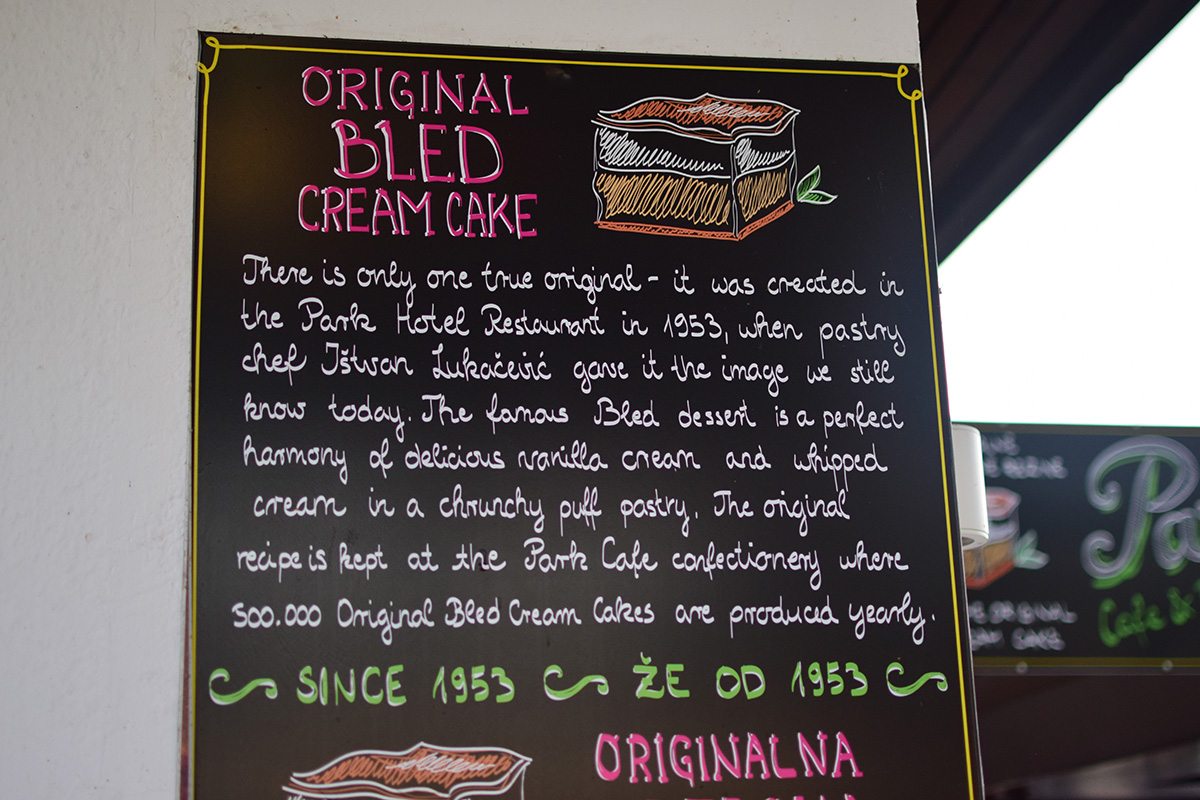 ORIGINAL
BLED
CREAM CAKE
There is only one true original - it was created in
the Park Hotel Restaurant in 1953, when pastry
chef Ištvan Lukačević gave it the image we still
know today. The famous Bled dessert is a perfect
harmony of delicious vanilla cream and whipped
cream in a chrunchy puff pastry. The original
recipe is kept at the Park Cafe confectionery where
500.000 Original Bled Cream Cakes are produced yearly.
SINCE 1953 ŽE OD 1953
ORIGINALNA
Pa
Cafe
ORIGINAL
CAKE